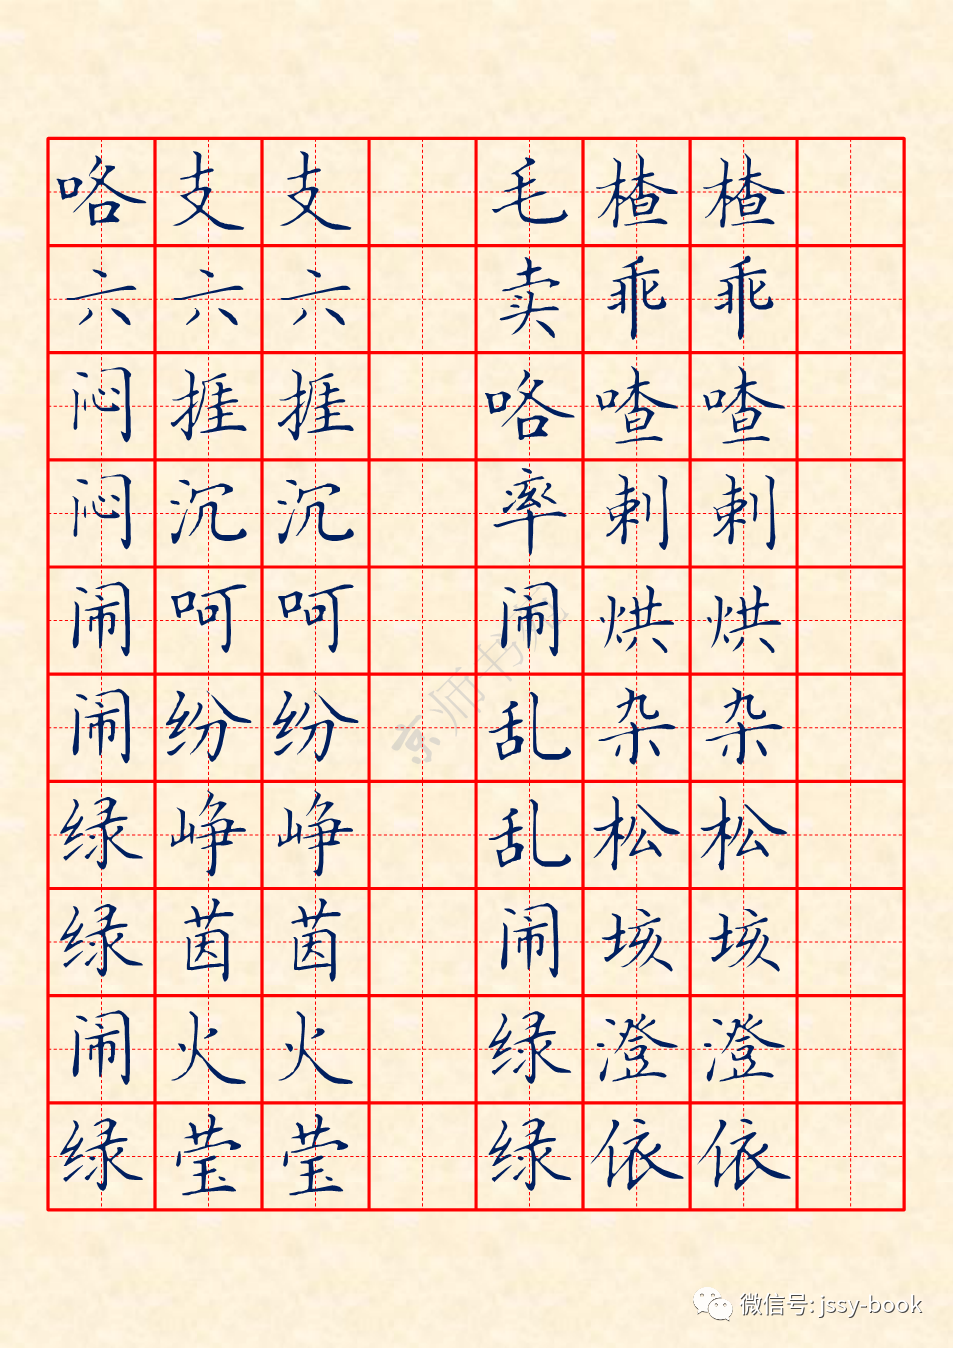 咯支支 毛楂楂
六六六 卖乖乖
闷捱捱 咯喳喳
闷沉沉 率剌剌
闹呵呵 闹烘烘
闹纷纷 乱杂杂
绿峥峥 乱松松
绿茵茵 闹垓垓
闹火火 绿澄澄
绿莹莹 绿依依
京师书苑
微信号: jssy-book